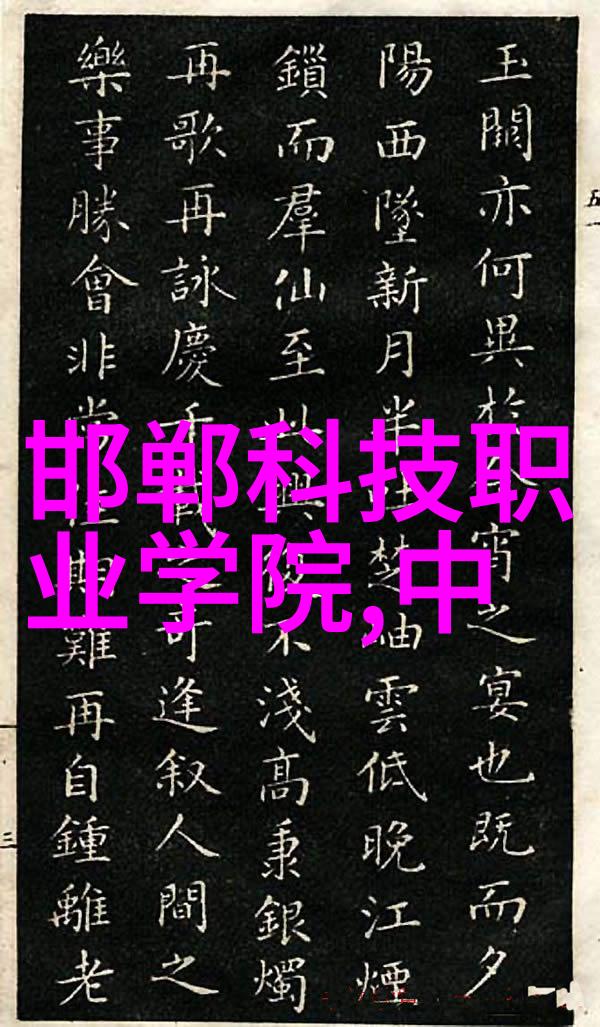 玉闕亦何異於今宵之宴也既而夕
陽西墜新月半吐楚岫雲低晚江煙
鎖而羣仙至此興復不淺高秉銀燭
再歌再詠慶千載之可逢叙人間之
樂事勝會非常佳期難再自鍾離老
邯郸科技职
业学院,中
五一
三